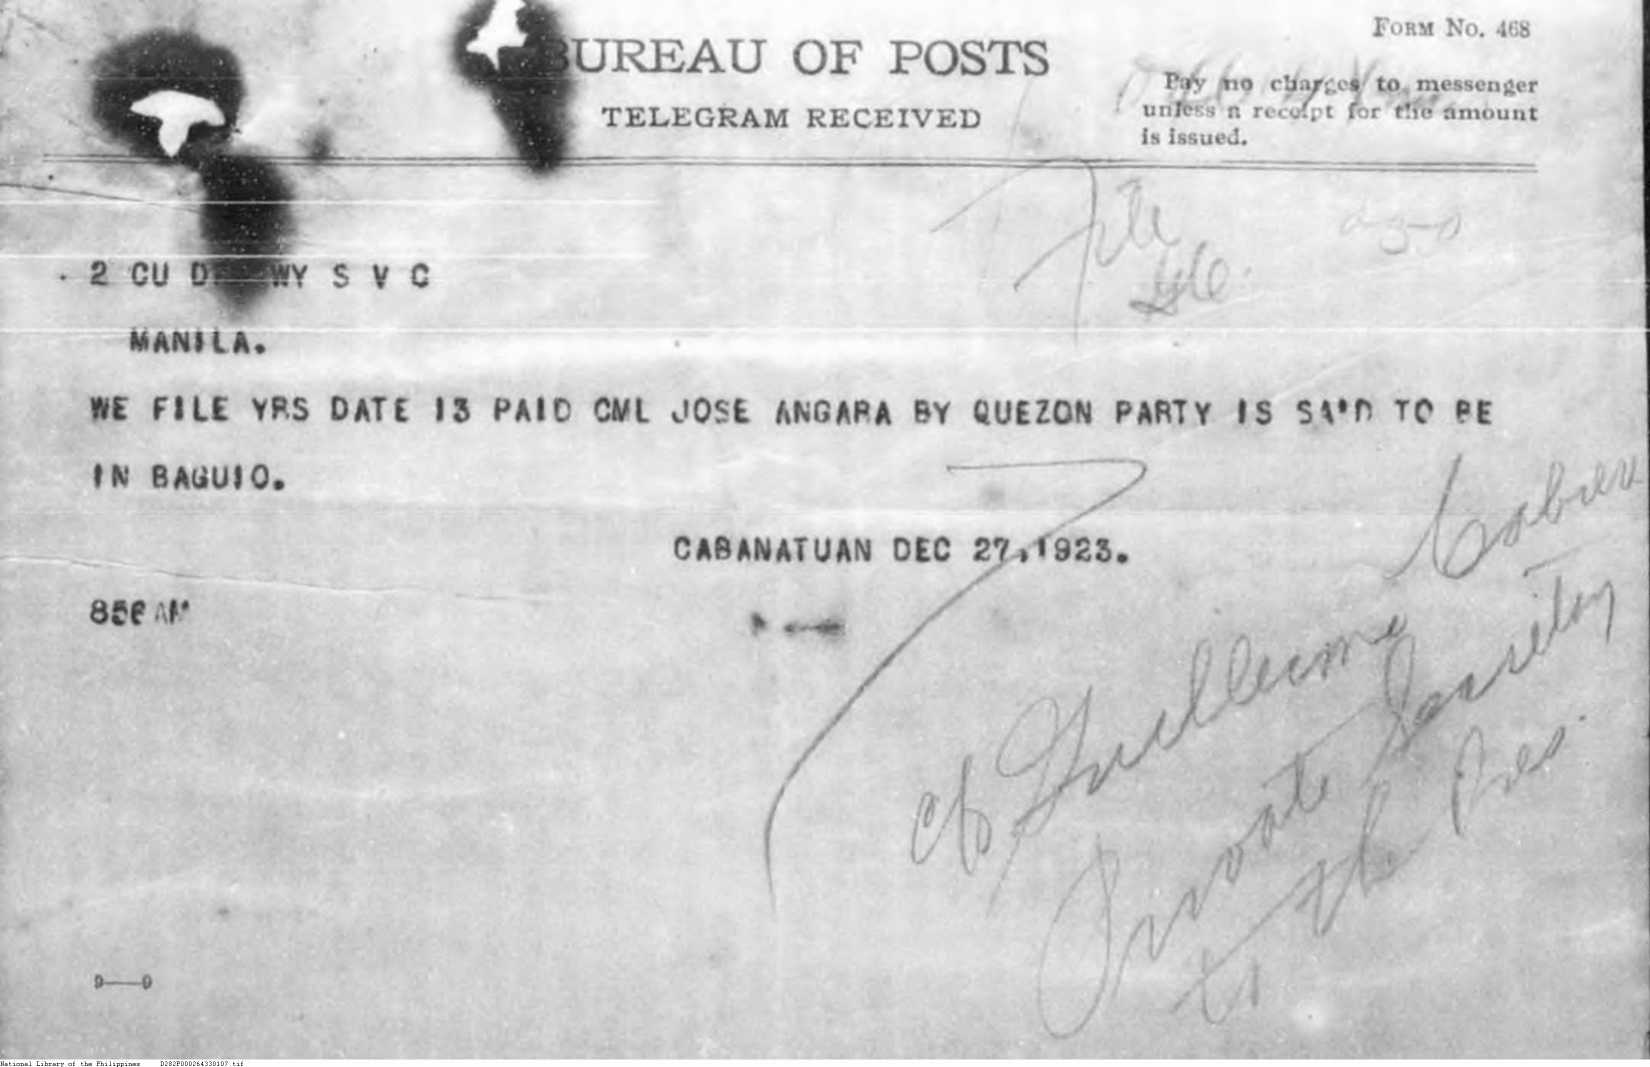 FORM NO. 468
BUREAU OF POSTS
TELEGRAM RECEIVED
Pay no charges to messenger
unless a receipt for the amount
is issued.
File
2 CU D WY S V C
MANILA.
WE FILE YRS DATE 13 PAID CML JOSE ANGARA BY QUEZON PARTY IS SAID TO BE
IN BAGUIO.
CABANATUAN DEC 27,1923.
856 AM
c/o Guillermo Cabrera
Private Secretary
to the Pres.
9—9
National Library of the Philippines D282P000264330107.tif